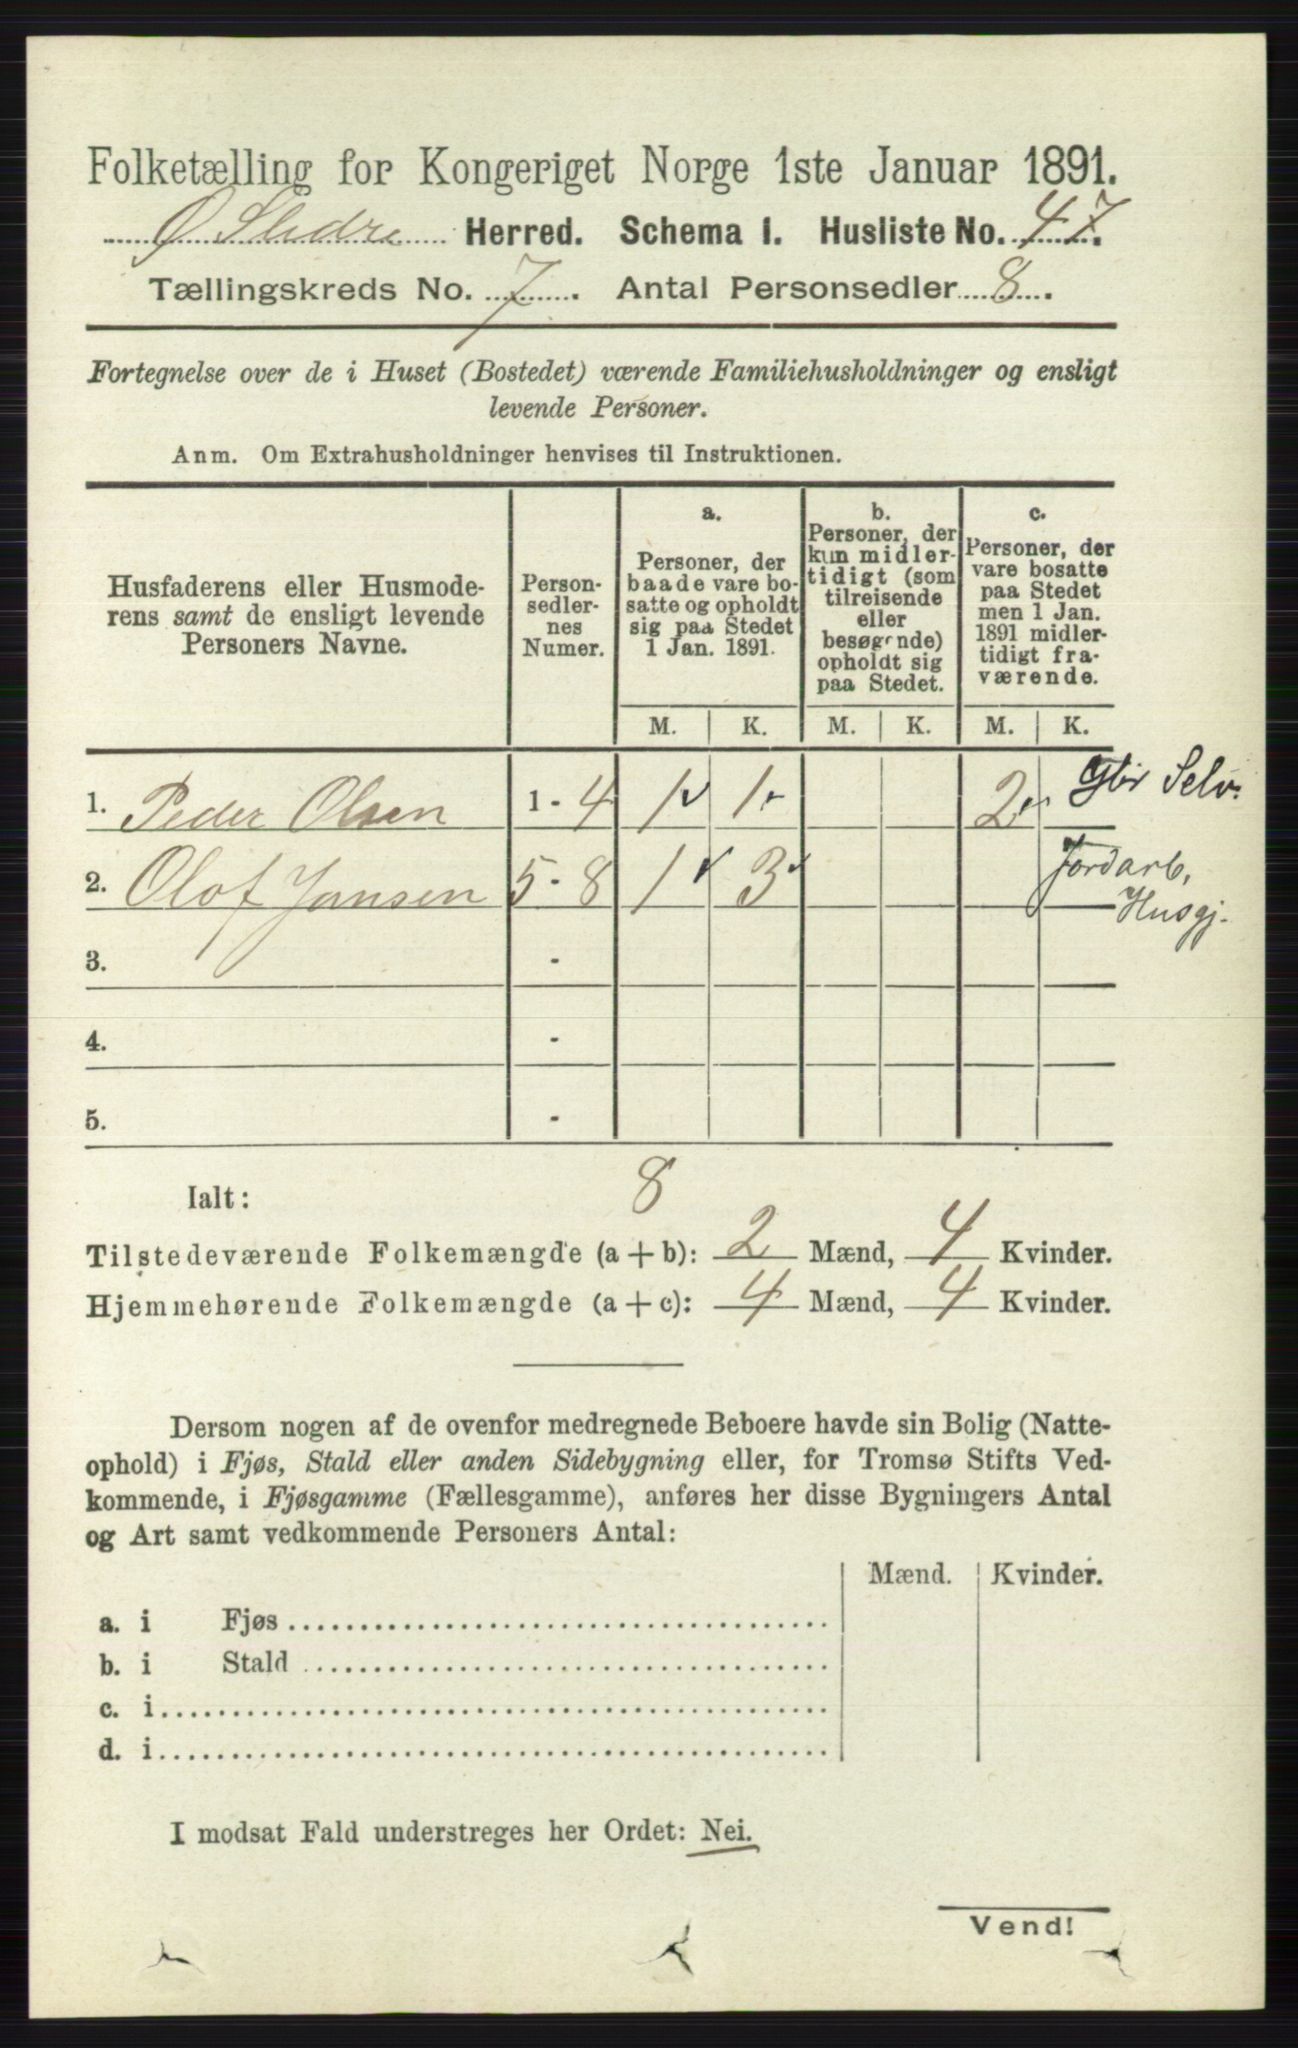 Folketælling for Kongeriget Norge 1ste Januar 1891.
Ø Slidre Herred. Schema 1. Husliste No. 47.
Tællingskreds No. 7. Antal Personsedler 8.
Fortegnelse over de i Huset (Bostedet) værende Familiehusholdninger og ensligt
levende Personer.
Anm. Om Extrahusholdninger henvises til Instruktionen.
Husfaderens eller Husmode-
rens samt de ensligt levende
Personers Navne.
Person-
sedler-
nes
Numer.
a.
Personer, der
baade vare bo-
satte og opholdt
sig paa Stedet
1 Jan. 1891.
b.
Personer, der
kun midler-
tidigt (som
tilreisende
eller
besøgende)
opholdt sig
paa Stedet.
c.
Personer, der
vare bosatte
paa Stedet
men 1 Jan.
1891 midler-
tidigt fra-
værende.
M. K. M. K. M. K.
1. Peder Olsen 1 - 4 1 1 2 Gbr Selv.
2. Olof Jansen 5 - 8 1 3 Jordarb,
Husgj.
3. -
4. -
5. -
Ialt: 8
Tilstedeværende Folkemængde (a + b): 2 Mænd, 4 Kvinder.
Hjemmehørende Folkemængde (a + c): 4 Mænd, 4 Kvinder.
Dersom nogen af de ovenfor medregnede Beboere havde sin Bolig (Natte-
ophold) i Fjøs, Stald eller anden Sidebygning eller, for Tromsø Stifts Ved-
kommende, i Fjøsgamme (Fællesgamme), anføres her disse Bygningers Antal
og Art samt vedkommende Personers Antal:
Mænd. Kvinder.
a. i Fjøs
b. i Stald
c. i
d. i
I modsat Fald understreges her Ordet: Nei.
Vend!